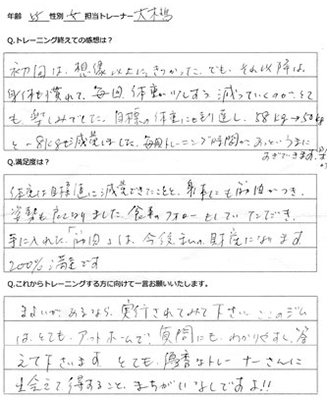 年齢 性別 女 担当トレーナー 大木場
Q.トレーニング終えての感想は？
初回は、想像以上にきつかった。でも、それ以降は、
身体も慣れて、毎回、体重が少しずつ減っていくのが、とて
も楽しみでした。目標の体重にも到達し、58kg→50kg
と-8kgも減量しました。毎回トレーニング時間が、あっというまに
すぎていきます。
Q.満足度は？
体重は目標値に減量できたことと、筋肉がつき、
姿勢も良くなりました。食事のフォローもしていただき、
手に入れた「筋肉」は、今後私の財産になります
200%満足です
Q.これからトレーニングする方に向けて一言お願いいたします。
まよいがあるなら、実行されてみて下さい。ここのジム
は、とても、アットホームで、質問にも、わかりやすく、答
えて下さいます。とても、優秀なトレーナーさんに
出会えて得すること、まちがいなしですよ!!